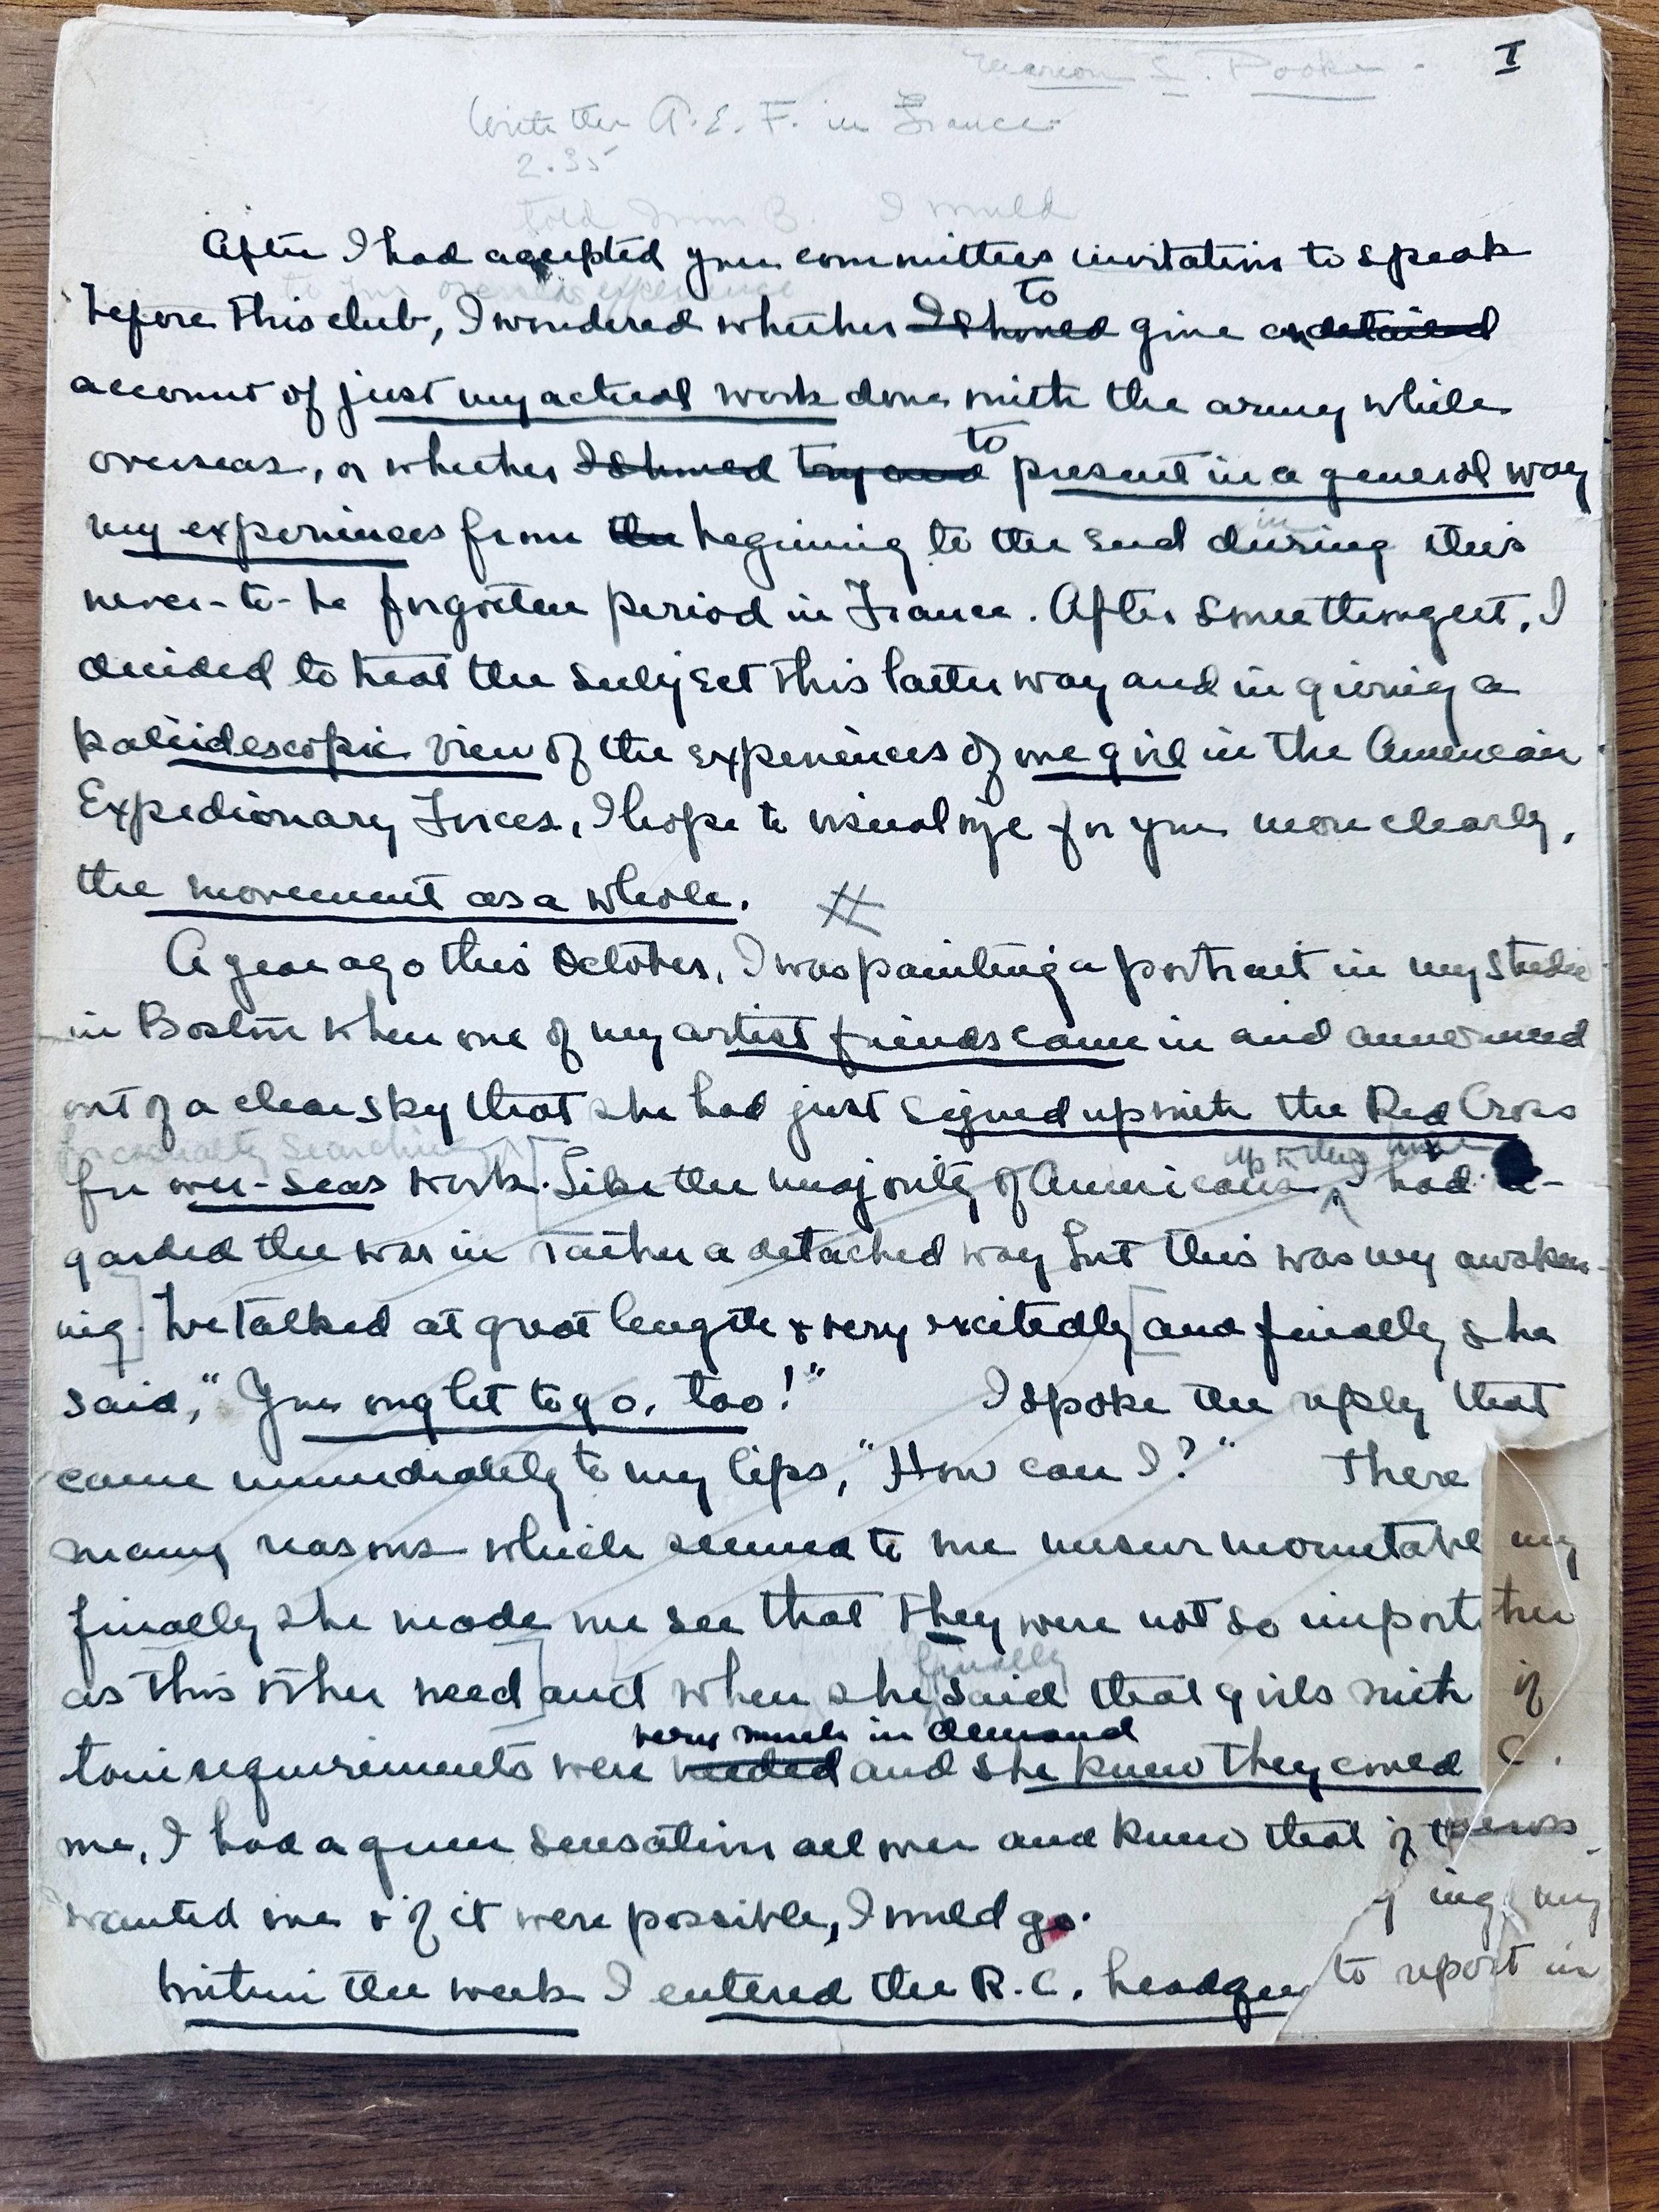 I
Marion L. Pooke.
With the A.E.F. in France.
2.35
told B. I would
After I had accepted your committees invitation to speak
to your overseas experience
to
before this club, I wondered whether I should give an detailed
account of just my actual work done with the army while
to
overseas, or whether I should try and present in a general way
in
my experiences from the beginning to the end during this
never-to-be forgotten period in France. After some thought, I
decided to treat the subject this latter way and in giving a
kaleidescopic view of the experiences of one girl in the American
Expedionary Forces, I hope to visualize for you more clearly,
the movement as a whole. #
A year ago this October, I was painting a portrait in my studio
in Boston when one of my artist friends came in and announced
out of a clear sky that she had just signed up with the Red Cross
for casualty searching
up to this time
for over-seas work. [Like the majority of Americans I had re-
garded the war in rather a detached way but this was my awaken-
ing.] We talked at great length & very excitedly [and finally she
said, "You ought to go, too!" I spoke the reply that
came immediately to my lips, "How can I?" There
many reasons which seemed to me unsurmountable my
finally she made me see that they were not so import
finally
as this other need] and when she said that girls with if
very much in demand
requirements were needed and she knew they could C.
me, I had a queer sensation all over and knew that if
wanted me & if it were possible, I would go. ing my
Within the week I entered the R.C. headqu to report in